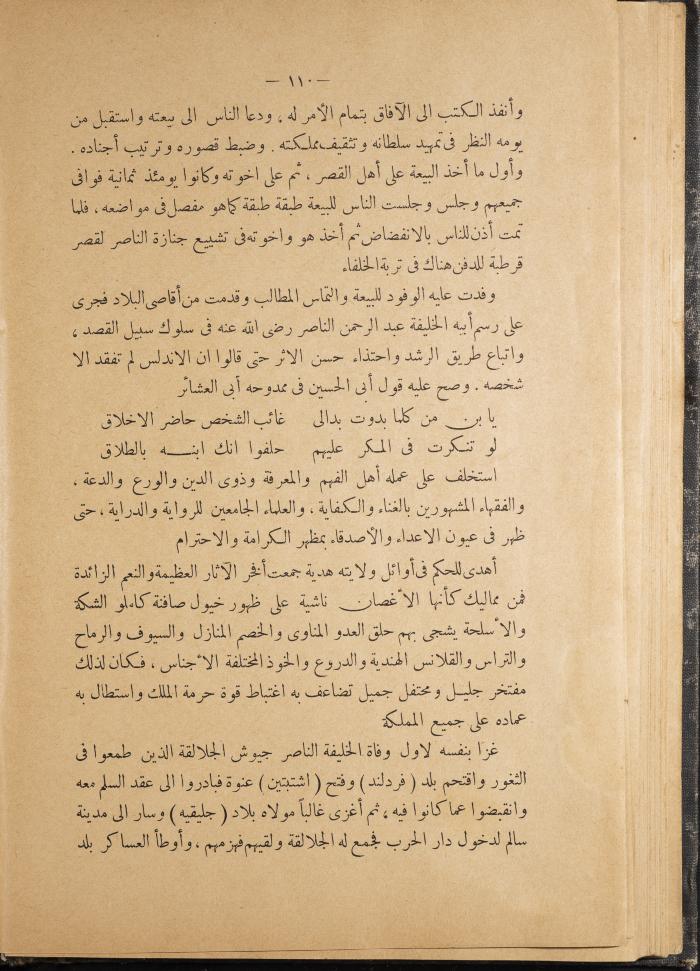 — ١١٠ —
وأنفذ الكتب الى الآفاق بتمام الأمر له ، ودعا الناس الى بيعته واستقبل من
يومه النظر فى تمهيد سلطانه وتثقيف مملكته . وضبط قصوره وترتيب أجناده .
وأول ما أخذ البيعة على أهل القصر ، ثم على اخوته وكانوا يومئذ ثمانية فوافى
جميعهم وجلس وجلست الناس للبيعة طبقة طبقة كما هو مفصل فى مواضعه ، فلما
تمت أذن للناس بالانفضاض ثم أخذ هو واخوته فى تشييع جنازة الناصر لقصر
قرطبة للدفن هناك فى تربة الخلفاء
وفدت عليه الوفود للبيعة والتماس المطالب وقدمت من أقاصى البلاد فجرى
على رسم أبيه الخليفة عبد الرحمن الناصر رضى الله عنه فى سلوك سبيل القصد ،
واتباع طريق الرشد واحتذاء حسن الاثر حتى قالوا ان الاندلس لم تفقد الا
شخصه . وصح عليه قول أبى الحسين فى ممدوحه أبى العشائر
يا بن من كلما بدوت بدالى غائب الشخص حاضر الاخلاق
لو تنكرت فى المكر عليهم حلفوا انك ابنـــه بالطلاق
استخلف على عمله أهل الفهم والمعرفة وذوى الدين والورع والدعة ،
والفقهاء المشهورين بالغناء والكفاية ، والعلماء الجامعين للرواية والدراية ، حتى
ظهر فى عيون الاعداء والأصدقاء بمظهر الكرامة والاحترام
أهدى للحكم فى أوائل ولايته هدية جمعت أفخر الآثار العظيمة والنعم الزائدة
فمن مماليك كأنها الأغصان ناشية على ظهور خيول صافنة كاملو الشكة
والأسلحة يشجى بهم حلق العدو المناوى والخصم المنازل والسيوف والرماح
والتراس والقلانس الهندية والدروع والخوذ المختلفة الأجناس ، فكان لذلك
مفتخر جليل ومحتفل جميل تضاعف به اغتباط قوة حرمة الملك واستطال به
عماده على جميع المملكة
غزا بنفسه لاول وفاة الخليفة الناصر جيوش الجلالقة الذين طمعوا فى
الثغور واقتحم بلد ( فردلند ) وفتح ( اشتبتين ) عنوة فبادروا الى عقد السلم معه
وانقبضوا عما كانوا فيه ، ثم أغزى غالباً مولاه بلاد ( جليقيه ) وسار الى مدينة
سالم لدخول دار الحرب فجمع له الجلالقة ولقيهم فهزمهم ، وأوطأ العساكر بلد